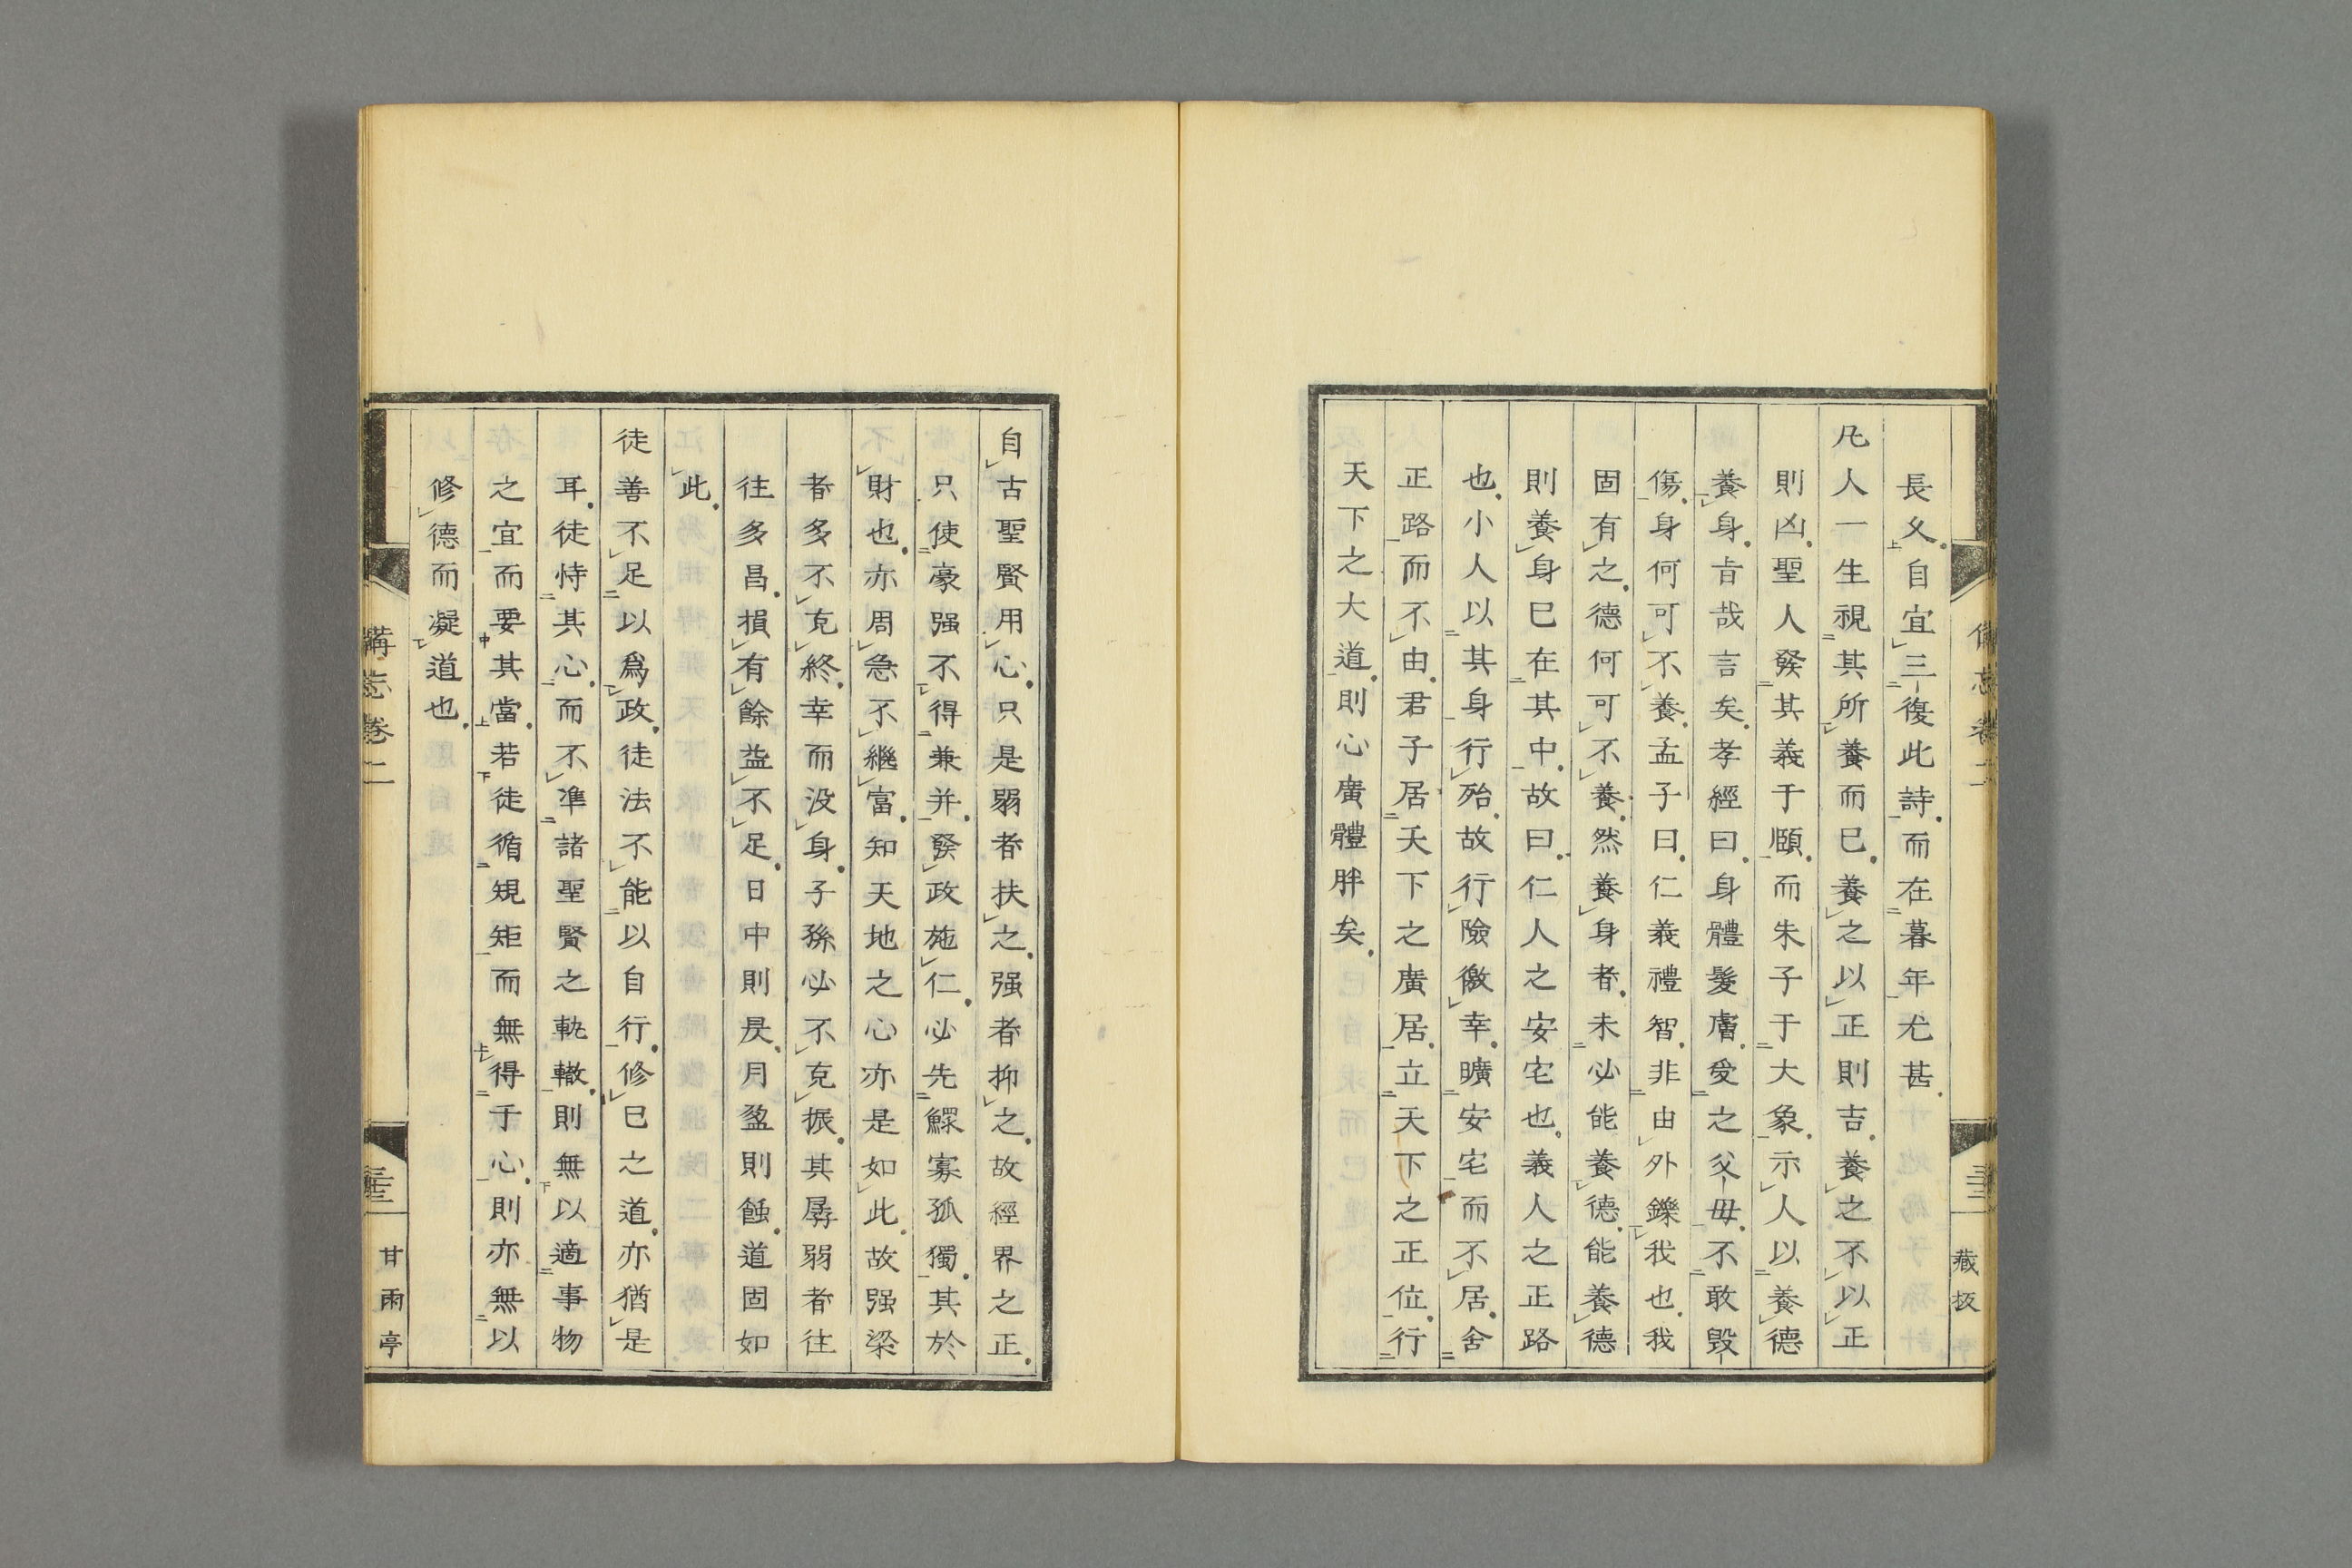 長久。自宜三復此詩。而在暮年尤甚。
凡人一生視其所養而已。養之以正則吉。養之不以正
則凶。聖人發其義于頤。而朱子于大象。示人以養德
養身。旨哉言矣。孝經曰。身體髮膚。受之父母。不敢毀
傷。身何可不養。孟子曰。仁義禮智。非由外鑠我也。我
固有之。德何可不養。然養身者。未必能養德。能養德
則養身已在其中。故曰。仁人之安宅也。義人之正路
也。小人以其身行殆。故行險徼幸。曠安宅而不居。舍
正路而不由。君子居天下之廣居。立天下之正位。行
天下之大道。則心廣體胖矣。
藏板
自古聖賢用心。只是弱者扶之。强者抑之。故經界之正。
只使豪强不得兼并。發政施仁。必先鰥寡孤獨。其於
財也。亦周急不繼富。知天地之心亦是如此。故强梁
者多不克終。幸而沒身。子孫必不克振。其孱弱者往
往多昌。損有餘益不足。日中則昃。月盈則蝕。道固如
此。
徒善不足以爲政。徒法不能以自行。修已之道。亦猶是
耳。徒恃其心。而不準諸聖賢之軌轍。則無以適事物
之宜而要其當。若徒循規矩而無得于心。則亦無以
修德而凝道也。
備忘卷二
甘雨亭